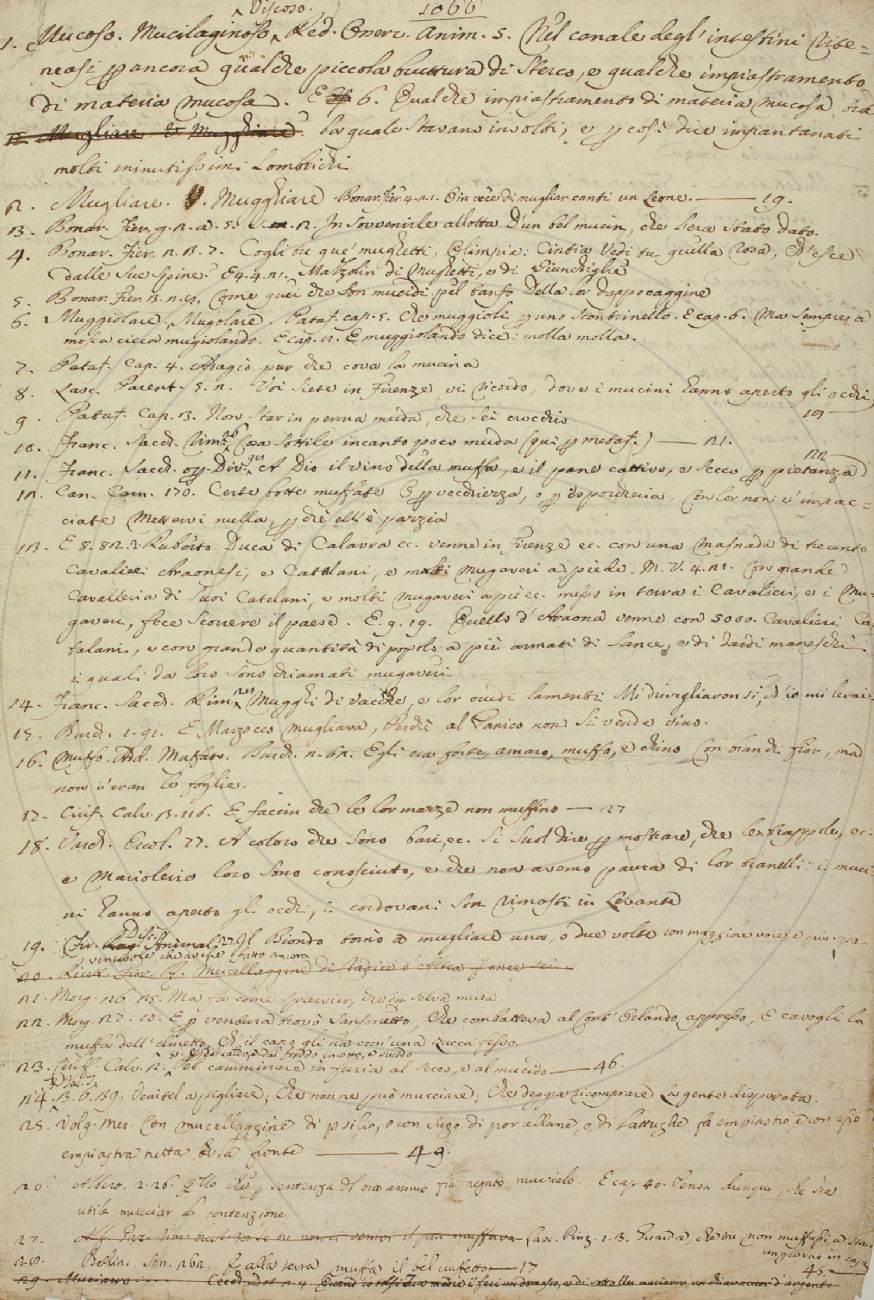 1066
Viscoso.
1. Mucoso. Mucilaginoso, Red. Osserv. Anim. 5. Nel canale degl' intestini rite-
neasi ancora qualche piccola bruttura di sterco, e qualche impiastramento
di materia mucosa. E 6. Qualche impiastramento di materia mucosa,
la quale stavano involti, e così dire impantanati
molti minutissimi Lombrichi
2. Mugliare. V. Mugghiare Bonar. Fier. 4. Chi in vece di mugliar canti un Leone. — 19.
3. Bonar. Fier. In sovvenirle allotta d'un bel mucin, che l'era stato dato.
4. Bonar. Fier. 2. 3. 7. Cogli tu que' mughetti, Olimpia: Cintia vedi tu quella rosa, ch'esce
dalle sue spine? E 4. 4. Mazzolin di mughetti, e di Giunchiglie
5. Bonar. Fier. Come quei che son mucidi pel tanfo della lor dappocaggine
6. Muggiolare. Mugolare. Pataf. cap. 5. Che muggioli uno stontrinello. E cap. 6. Ma sempre a
mosca cieca mugiolando. E cap. E muggiolando dice: molla molla.
7. Pataf. Cap. 4. Adagio pur che cova la mucina
8. Lasc. Parent. 5. Voi siete in Firenze, vi ricordo, dove i mucini hanno aperto gli occhi
9. Pataf. Cap. 3. Non star in penna muda, che sei crocchio
10. Franc. Sacch. Rim. Cosa sottile incanto poco muda (qui metaf.) — 21.
11. Franc. Sacch. Op. Div. A Dio il vino della muffa, e il pane cattivo, e secco pietanza
12. Can. Carn. 170. Certe botte muffate vecchiezza, o porcheria, Con lor non v'impac-
ciate Mettervi nulla, ch'ell'è pazzia
13. Ruberto Duca di Calavra ec. venne in Firenze ec. con una masnada di trecento
cavalieri Araonesi, e Catelani, e molti mugaveri a piede. M. V. 4. Con grande
cavalleria di suoi Catelani, e molti mugaveri a piè ec. messo in terra i Cavalieri, e i Mu-
gaveri, fece scorrere il paese. E 9. 19. Quello d'Araona venne con 5000. Cavalieri Ca-
talani, e con grande quantità di popolo a piè armati di lance, e di dardi maneschi
i quali da loro sono chiamati mugaveri
14. Franc. Sacch. Rim. Mugghi di vacche, e lor oridi lamenti Mi disvegliavon sì, ch'io mi levai
15. Burch. 1. 91. E Marzocco mugliava, Perchè al Panico non si vende vino.
16. Muffo. Add. Muffato. Burch. Egli era forte, amaro, muffo, e chino Con grandi fior, ma
non v'eran le foglie.
17. Ciriff. Calv. 3. 116. E faccin che le lor marze non muffino — 27
18. Varch. Ercol. 77. A coloro che sono bari, ec. si suol dire mostrare, che le trappole, ec.
e Mariolerie loro sono conosciute, e che non avemo paura di lor tranelli: i muci-
ni hanno aperto gli occhi, i cordovani son rimasti in Levante
19. Il Biondo tornò a mugliare una, o due volte con maggiore voce, e più spa-
ventevole che avesse fatto ancora
20. Ricett. Fior. Mucellaggine di stadice d'Altea once sei
21. Morg. Ma fa come sparvier, che in selva muta
22. Morg. 27. 10. E ventura trovò Sansonetto, Che combatteva al Conte Orlando appresso, E cavogli la
muffa dell'elmetto, Ch'il capo gli ha com'una zucca fesso.
23. Ciriff. Calv. 2. Del camminare in furia al secco, e al mucido — 46.
24. Venitel a pigliare; che non ne può mucciare; Che deggia ricomprare La gente disperata.
25. Volg. Mes. Con mucellaggine di psilio, o con sugo di porcellane, o di lattughe fa empiastro, e con esso
empiastra tutta la fronte — 49.
26. Albert. 2. 26. sentenza fia negato mucciarlo. E cap. 40. Pensa dunque, che sia
utile mucciar la contenzione.
27. Lasc. Pinz. 1. 3. Guarda, che tu non muffassi a star
un giorno in casa
28. Bellin. Son. E alla serra muffa il bel ciuffetto — 17
45 —
29. Muciaro